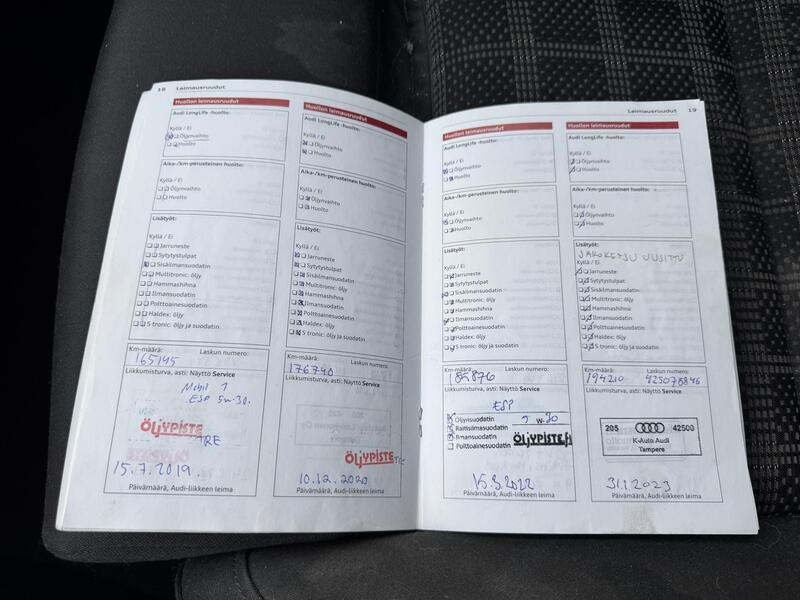 18 Leimausruudut
Huollon leimausruudut
Audi LongLife -huolto:
Kyllä / Ei
Öljynvaihto
Huolto
Aika-/km-perusteinen huolto:
Kyllä / Ei
Öljynvaihto
Huolto
Lisätyöt:
Kyllä / Ei
Jarruneste
Sytytystulpat
Sisäilmansuodatin
Multitronic: öljy
Hammashihna
Ilmansuodatin
Polttoainesuodatin
Haldex: öljy
S tronic: öljy ja suodatin
Km-määrä: Laskun numero:
165145
Liikkumisturva, asti: Näyttö Service
Mobil 1
ESP 5w-30.
ÖLJYPISTE
TRE
15.7.2019
Päivämäärä, Audi-liikkeen leima
Huollon leimausruudut
Audi LongLife -huolto:
Kyllä / Ei
Öljynvaihto
Huolto
Aika-/km-perusteinen huolto:
Kyllä / Ei
Öljynvaihto
Huolto
Lisätyöt:
Kyllä / Ei
Jarruneste
Sytytystulpat
Sisäilmansuodatin
Multitronic: öljy
Hammashihna
Ilmansuodatin
Polttoainesuodatin
Haldex: öljy
S tronic: öljy ja suodatin
Km-määrä: Laskun numero:
176740
Liikkumisturva, asti: Näyttö Service
ÖLJYPISTE
10.12.2020
Päivämäärä, Audi-liikkeen leima
Leimausruudut 19
Huollon leimausruudut
Audi LongLife -huolto:
Kyllä / Ei
Öljynvaihto
Huolto
Aika-/km-perusteinen huolto:
Kyllä / Ei
Öljynvaihto
Huolto
Lisätyöt:
Kyllä / Ei
Jarruneste
Sytytystulpat
Sisäilmansuodatin
Multitronic: öljy
Hammashihna
Ilmansuodatin
Polttoainesuodatin
Haldex: öljy
S tronic: öljy ja suodatin
Km-määrä: Laskun numero:
185876
Liikkumisturva, asti: Näyttö Service
ESP
Öljynsuodatin W-30
Raitisilmasuodatin
Ilmansuodatin
Polttoainesuodatin
ÖLJYPISTE.fi
15.3.2022
Päivämäärä, Audi-liikkeen leima
Huollon leimausruudut
Audi LongLife -huolto:
Kyllä / Ei
Öljynvaihto
Huolto
Aika-/km-perusteinen huolto:
Kyllä / Ei
Öljynvaihto
Huolto
Lisätyöt:
JAKOKETJU UUSITTU
Kyllä / Ei
Jarruneste
Sytytystulpat
Sisäilmansuodatin
Multitronic: öljy
Hammashihna
Ilmansuodatin
Polttoainesuodatin
Haldex: öljy
S tronic: öljy ja suodatin
Km-määrä: Laskun numero:
194210 425078846
Liikkumisturva, asti: Näyttö Service
205 42500
K-Auto Audi
Tampere
31.1.2023
Päivämäärä, Audi-liikkeen leima